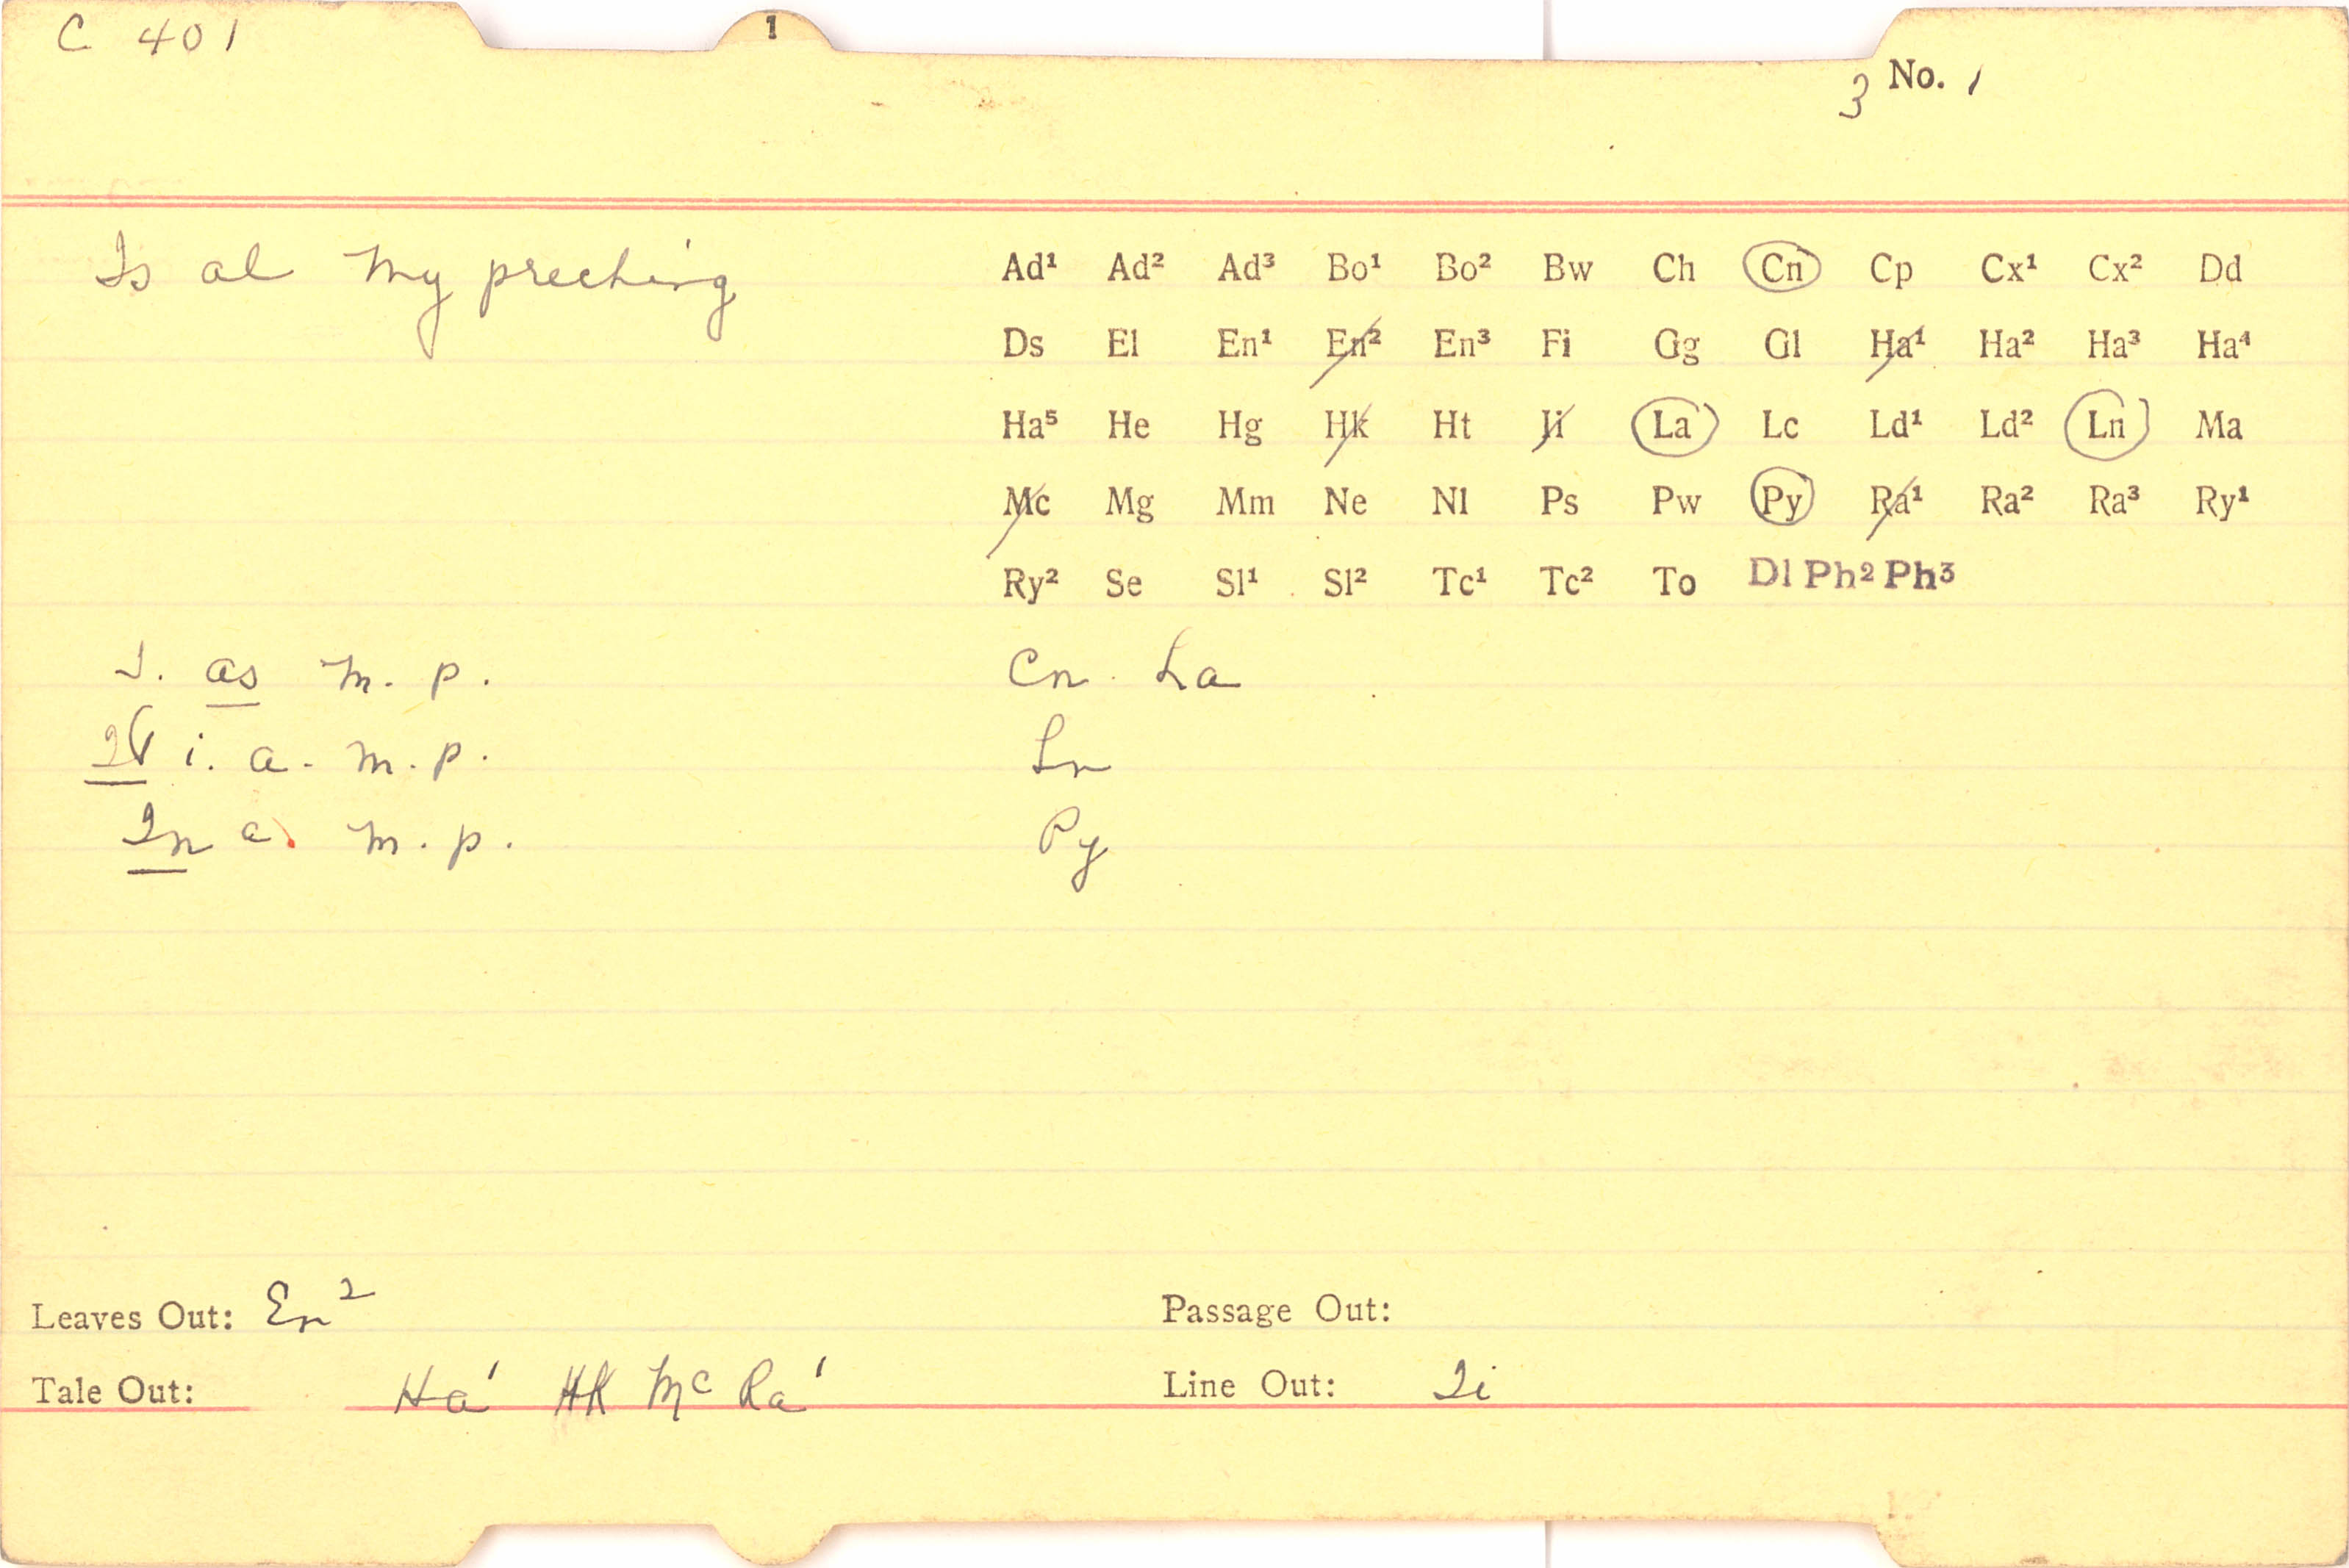 C 401
1
3 No. 1
Is al my preching
Ad¹ Ad² Ad³ Bo¹ Bo² Bw Ch Cn Cp Cx¹ Cx² Dd
Ds El En¹ En² En³ Fi Gg Gl Ha¹ Ha² Ha³ Ha⁴
Ha⁵ He Hg Hk Ht Ii La Lc Ld¹ Ld² Ln Ma
Mc Mg Mm Ne Nl Ps Pw Py Ra¹ Ra² Ra³ Ry¹
Ry² Se Sl¹ Sl² Tc¹ Tc² To Dl Ph² Ph³
I. as m. p. Cn La
i. a. m. p. Ln
In a. m. p. Py
Leaves Out: En² Passage Out:
Tale Out: Ha¹ Hk Mc Ra¹ Line Out: Ii